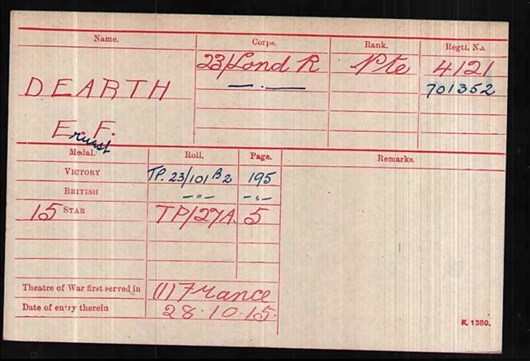 Name. Corps. Rank. Regtl. No.
23/Lond R Pte 4121
DEARTH —"— 701352
E. F.
Ernest
Medal. Roll. Page. Remarks.
VICTORY TP. 23/101 B2 195
BRITISH —"— —"—
15 STAR TP/27A. 5
Theatre of War first served in (1) France
Date of entry therein 28.10.15.
K. 1380.